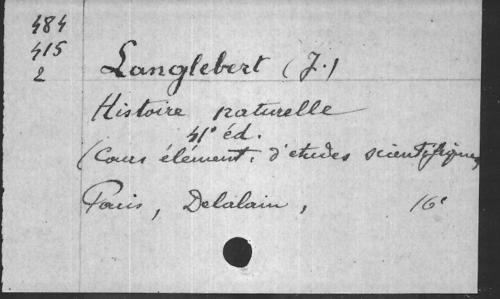 484
415
2
Langlebert (J.)
Histoire naturelle
41e éd.
(Cours élément. d'études scientifiques
Paris, Delalain, 16°